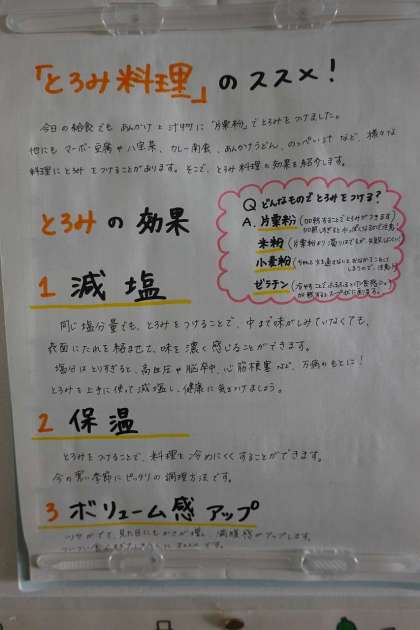 「とろみ料理」のススメ!
今日の給食でも あんかけ と 汁物に "片栗粉" で とろみをつけました。
他にも マーボー豆腐や 八宝菜、カレー南蛮、あんかけうどん、のっぺい汁 など、様々な
料理に とろみ をつけることがあります。そこで、とろみ料理の効果を紹介します。
Q どんなもので とろみをつける?
A. 片栗粉(加熱することでとろみができます
米粉(片栗粉より
小麦粉
ゼラチン
とろみの効果
1 減塩
同じ塩分量でも、とろみをつけることで、中まで味がしみていなくても、
表面にたれを絡ませて、味を濃く感じることができます。
塩分はとりすぎると、高血圧や脳卒中、心筋梗塞など、万病のもとに!
とろみを上手に使って減塩し、健康に気をつけましょう。
2 保温
とろみをつけることで、料理を冷めにくくすることができます。
今の寒い季節にピッタリの調理方法です。
3 ボリューム感アップ
ツヤがでて、見た目にもかさが増し、満腹感がアップします。